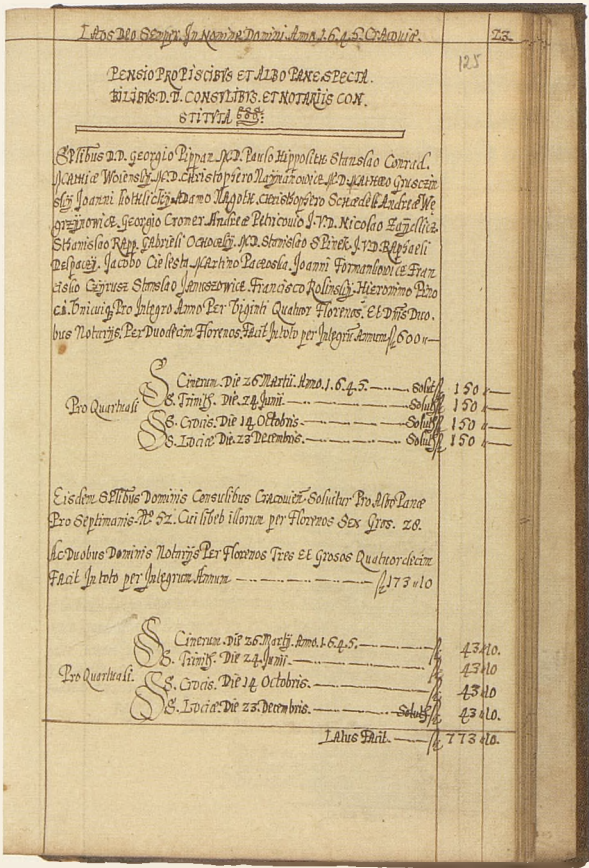 LAUS DEO Semper. In Nomine Domini. Anno. 1.6.4.5. CRACOVIÆ. 23
125
PENSIO PRO PISCIBUS ET ALBO PANE SPECTA.
BILIBUS. D.D. CONSULIBUS. ET NOTARIIS CON.
STITUTA
Sptlibus D.D. Georgio Pippan M.D. Paulo Hippolith Stanslao Conrad.
Mathiæ Woiensky. M.D. Christophero Naymanowicz M.D. Mathæo Grusczin
sky Joanni Kothlicky Adamo Nagoth. Christophero Schædel Andreæ We
grzynowicz. Georgio Cromer Andreæ Petricouio J.V.D. Nicolao Zaydlicz
Sthanislao Rapp. Gabrieli Ochocky. M.D. Stanislao SPinek J.V.D. Raphaeli
Delpacy. Jacobo Cielesta Martino Paczoska. Joanni Formankowicz Fran
cisco Czyrusz Stanslao Januszowicz. Francisco Rolinsky. Hieronimo Pino
ci. Unicuiq; Pro Integro Anno Per Viginti Quatuor Florenos. Et Dnis Duo.
bus Notarijs. Per Duodecim Florenos. Facit In toto per Integrū Annum fl 600 „—
S Cinerum. Die 26 Martii. Anno. 1.6.4.5. — Solut fl 150 „—
S. Trinit. Die. 24. Junii. — Solut fl 150 „—
Pro Quartuali
S. Crucis. Die 14 Octobris — Solut fl 150 „—
S. Luciæ. Die. 23 Decembris. — Solut fl 150 „—
Eisdem SPtlibus Dominis Consulibus Cracouien. Soluitur Pro Albo Pane
Pro Septimanis. No 52. Cuilibet illorum per Florenos Sex Gros. 28.
Ac Duobus Dominis Notarijs Per Florenos Tres Et Grosos Quatuordecim
Facit In toto per Integrum Annum — fl 173 „ 10
S Cinerum. Die 26. Martij. Anno. 1.6.4.5. — fl 43 „ 10.
S. Trinit. Die 24. Junii. — fl 43 „ 10
Pro Quartuali.
S. Crucis. Die 14 Octobris. — fl 43 „ 10
S. Luciæ. Die 23. Decembris. — Solut fl 43 „ 10.
Latus Facit. — fl 773 „ 10.